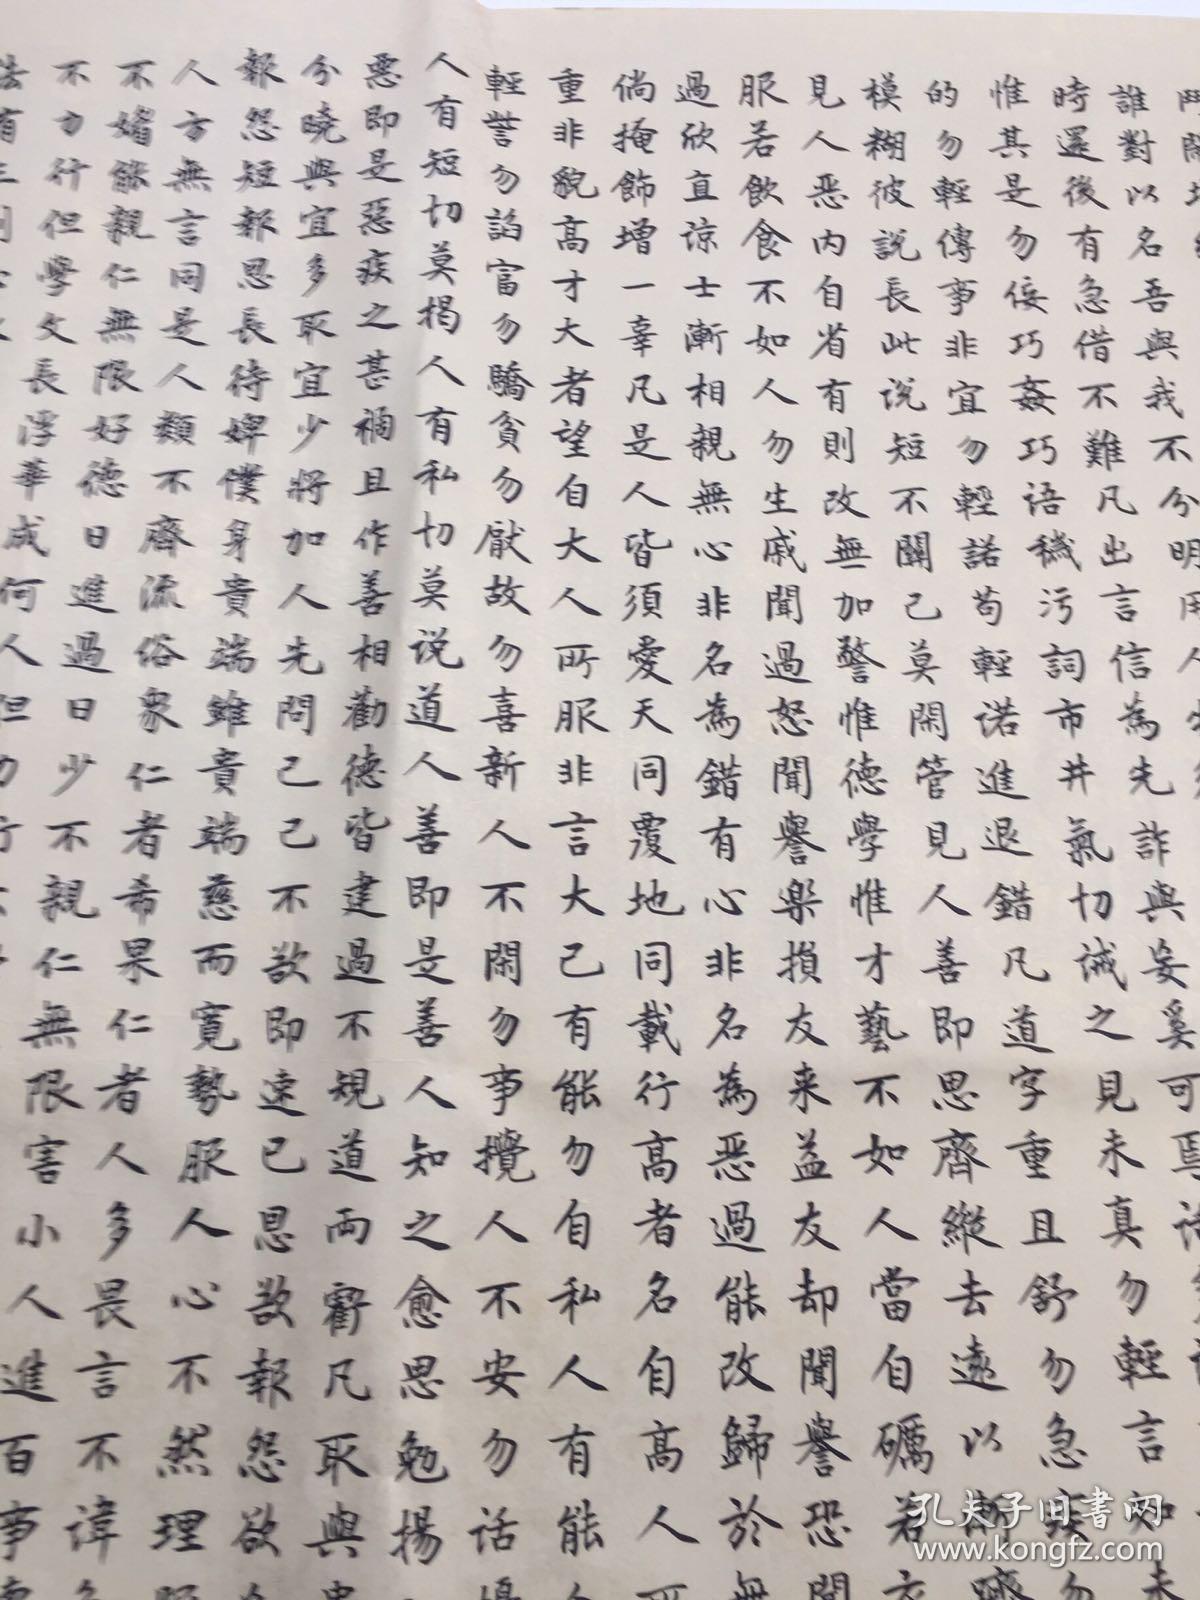 鬥鬧場
誰對以名吾與我不分明用人
時還後有急借不難凡出言信為先詐與妄奚可焉
惟其是勿佞巧姦巧語穢污詞市井氣切誠之見未真勿輕言知未
的勿輕傳事非宜勿輕諾苟輕诺進退錯凡道字重且舒勿急疾勿
模糊彼説長此说短不關己莫閑管見人善即思齊縱去遠以漸躋
見人恶内自省有則改無加警惟德學惟才藝不如人當自礪若衣
服若飲食不如人勿生戚聞過怒聞譽楽損友来益友却聞譽恐聞
過欣直諒士漸相親無心非名為錯有心非名為恶過能改歸於無
倘掩飾增一辜凡是人皆須愛天同覆地同載行高者名自高人所
重非貌高才大者望自大人所服非言大己有能勿自私人有能
輕訾勿諂富勿驕貧勿厭故勿喜新人不閑勿事攪人不安勿話擾
人有短切莫揭人有私切莫说道人善即是善人知之愈思勉揚
恶即是惡疾之甚禍且作善相勸德皆建過不規道兩虧凡取與貴
分曉與宜多取宜少將加人先問己己不欲即速已恩欲報怨欲
報怨短報恩長待婢僕身貴端雖貴端慈而寬勢服人心不然理服
人方無言同是人類不齊流俗眾仁者希果仁者人多畏言不諱色
不媚能親仁無限好德日進過日少不親仁無限害小人進百事
不力行但學文長浮華成何人但力行
法有三
孔夫子旧書网
www.kongfz.com